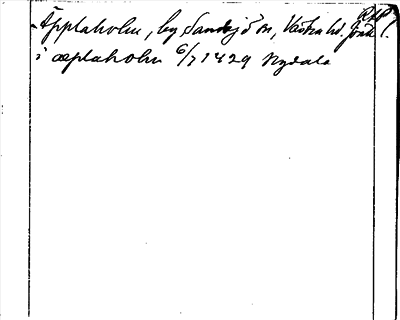 Äpplaholm, by Sandsjö sn, Västra hd. Jönk l.
i æplaholm 6/7 1429 Nydala